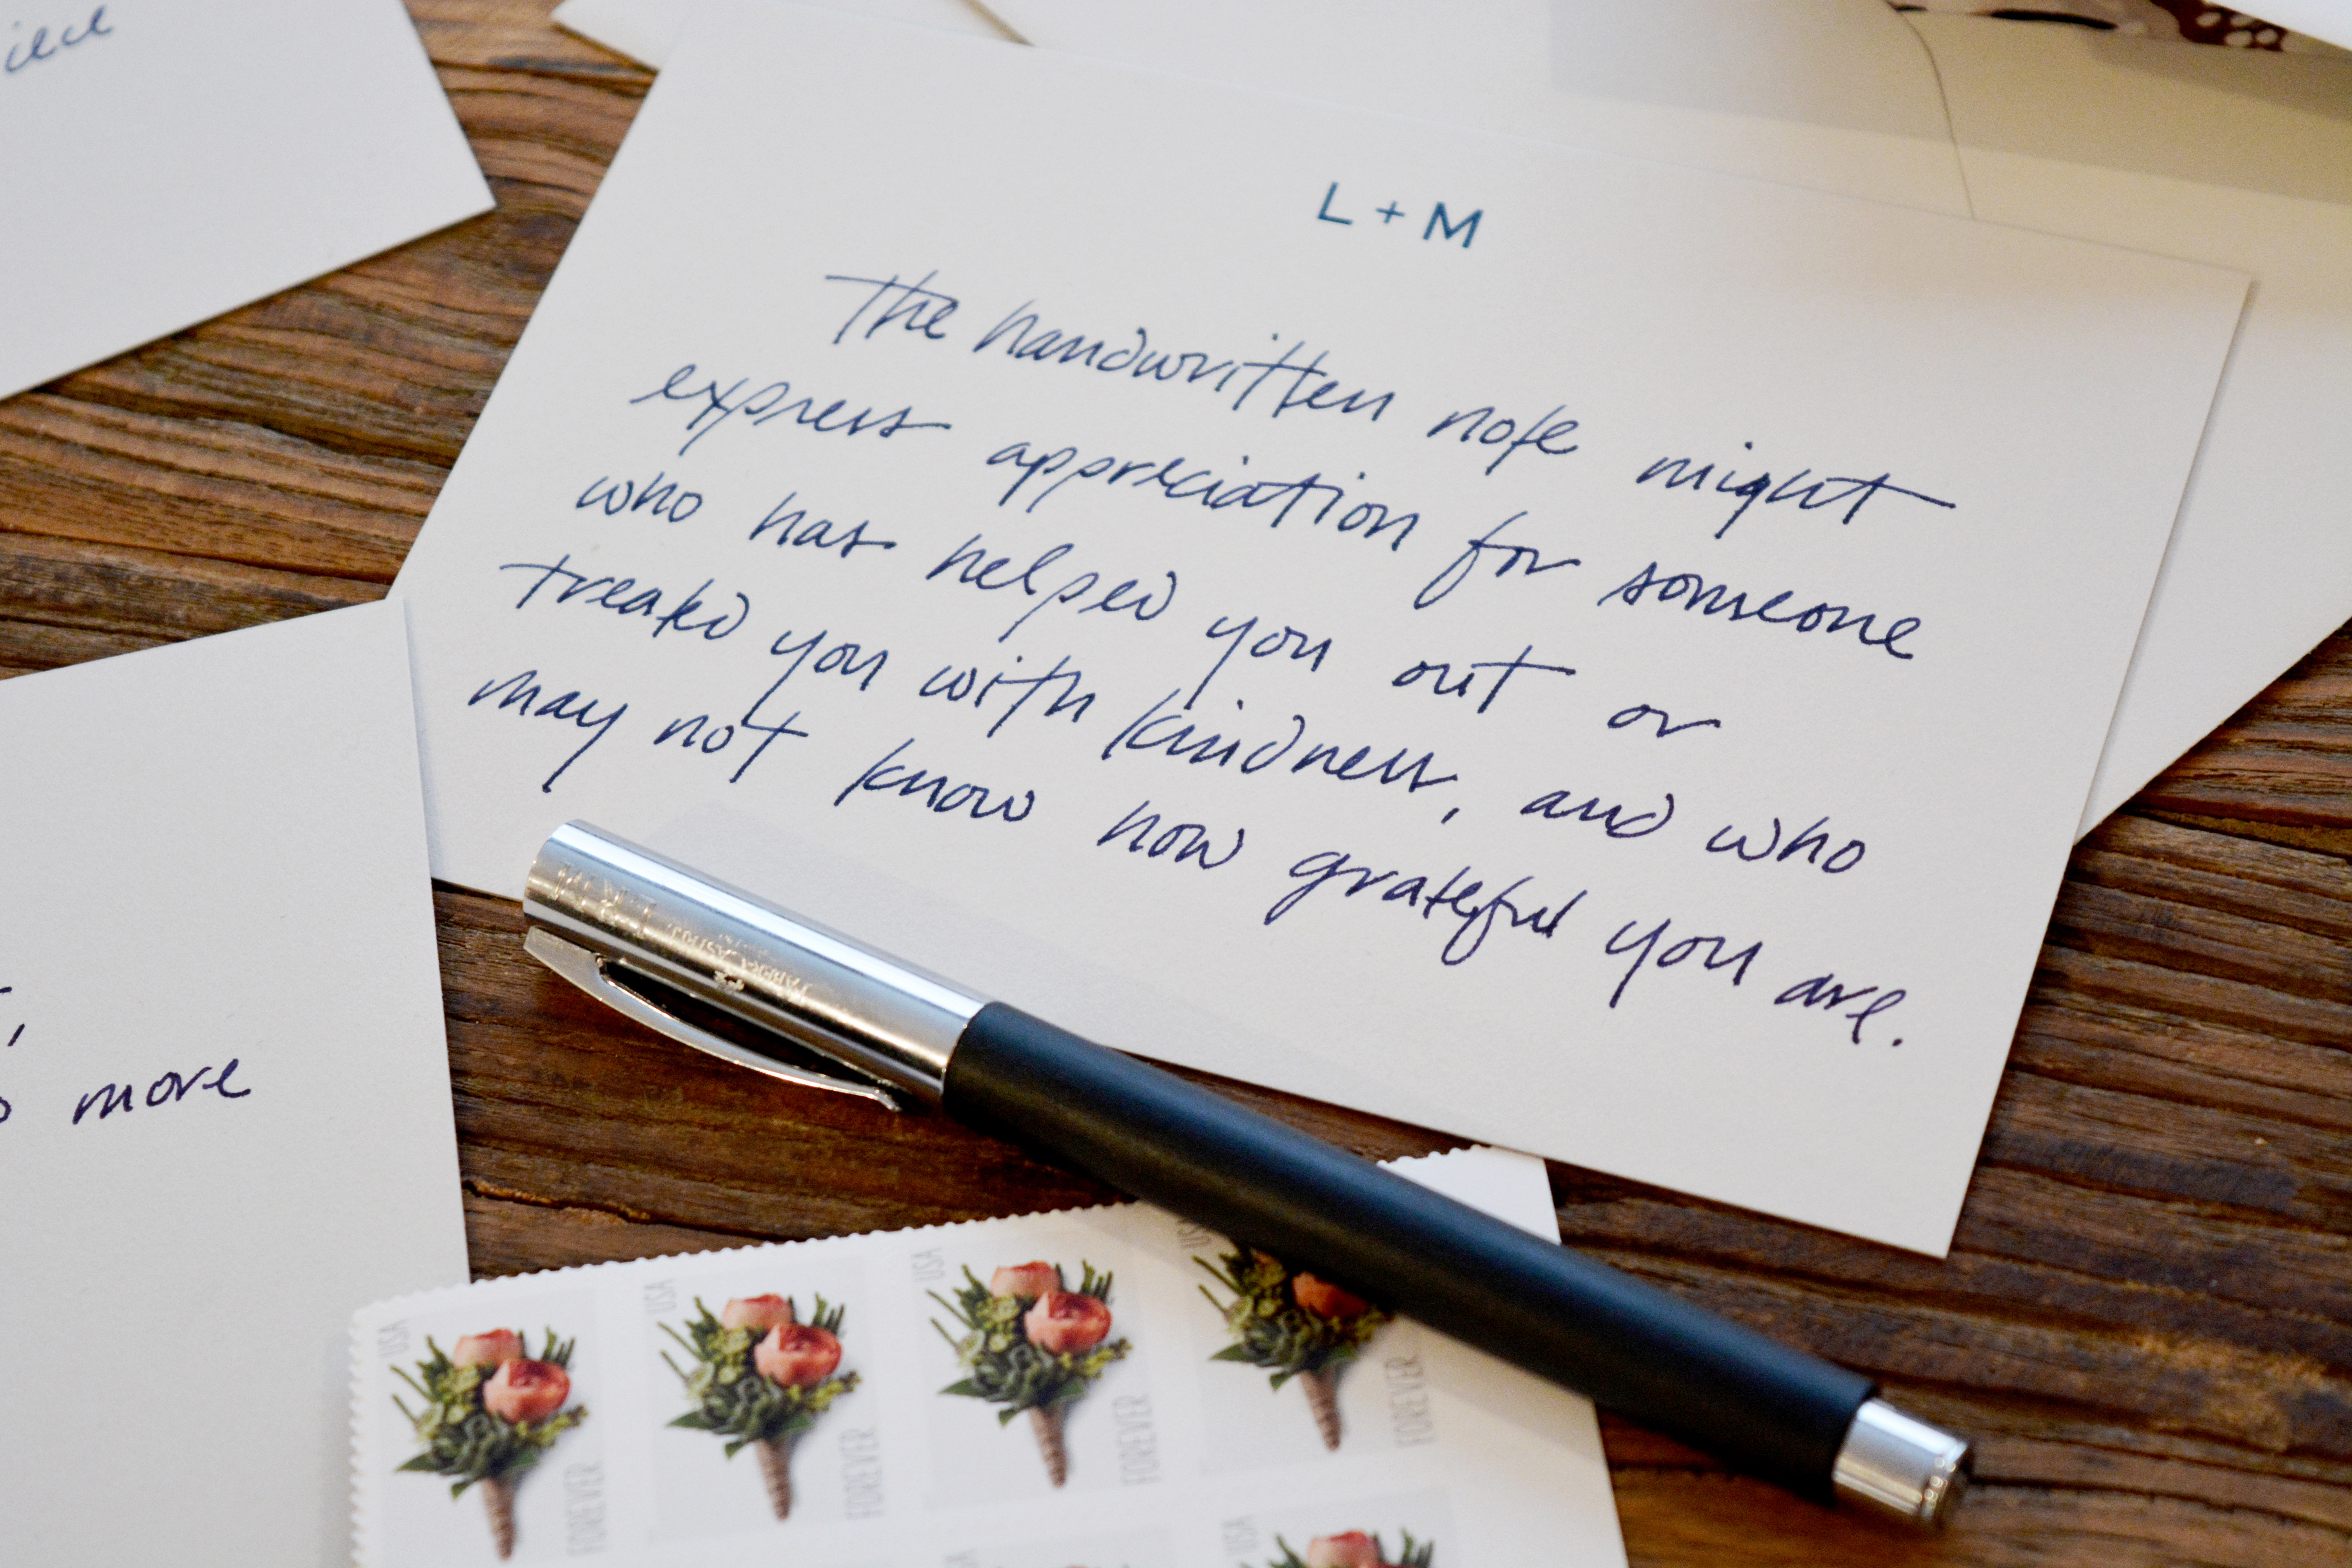 L + M
The handwritten note might
express appreciation for someone
who has helped you out or
treated you with kindness, and who
may not know how grateful you are.
more
FABER-CASTELL
USA
FOREVER
USA
FOREVER
USA
FOREVER
USA
FOREVER
USA